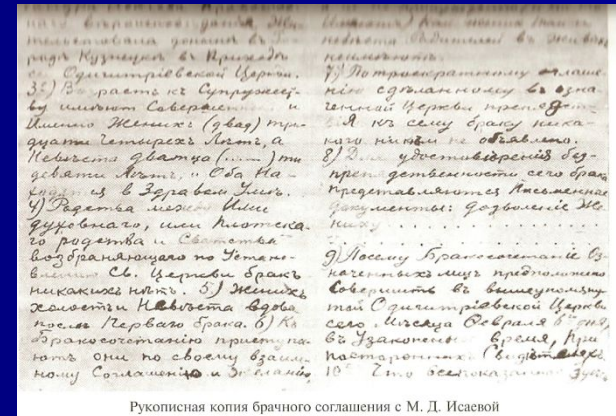 тельствовала доныне въ го-
роде Кузнецке въ Приходе
Одигитріевской Церкви.
3) Возрастъ къ Супружест-
ву имеютъ Совершенный и
Именно Женихъ (двад) три-
дцати Четырехъ Летъ, а
Невеста двадца (......) ти
девяти Летъ, Оба На-
ходятся въ Здравомъ Уме.
4) Родства между Ими
духовнаго, или плотска-
го родства и Сватства
возбраняющаго по Устано-
влению Св. Церкви бракъ
никакихъ нетъ. 5) Женихъ
холостъ и Невеста вдова
после Перваго брака. 6) Къ
Бракосочетанію приступа-
ютъ они по своему взаим-
ному Соглашению и Желанію
7) По троекратному оглаше-
нію сделанному въ озна-
ченной Церкви препятст-
Я къ сему браку ника-
кого никемъ не объявлено.
8) Для удостоверенія без-
препятственности сего брака
представляются Письменные
документы: дозволеніе Же-
ниху . . . . . . . . . .
9) Посему Бракосочетаніе Оз-
наченныхъ лицъ предположено
Совершить въ вышеупомяну-
той Одигитріевской Церкви
сего Месяца Февраля 6 дня,
въ Узаконенное время, При
посторонныхъ Свидетеляхъ
10 Что все показанное Здесь
Рукописная копия брачного соглашения с М. Д. Исаевой